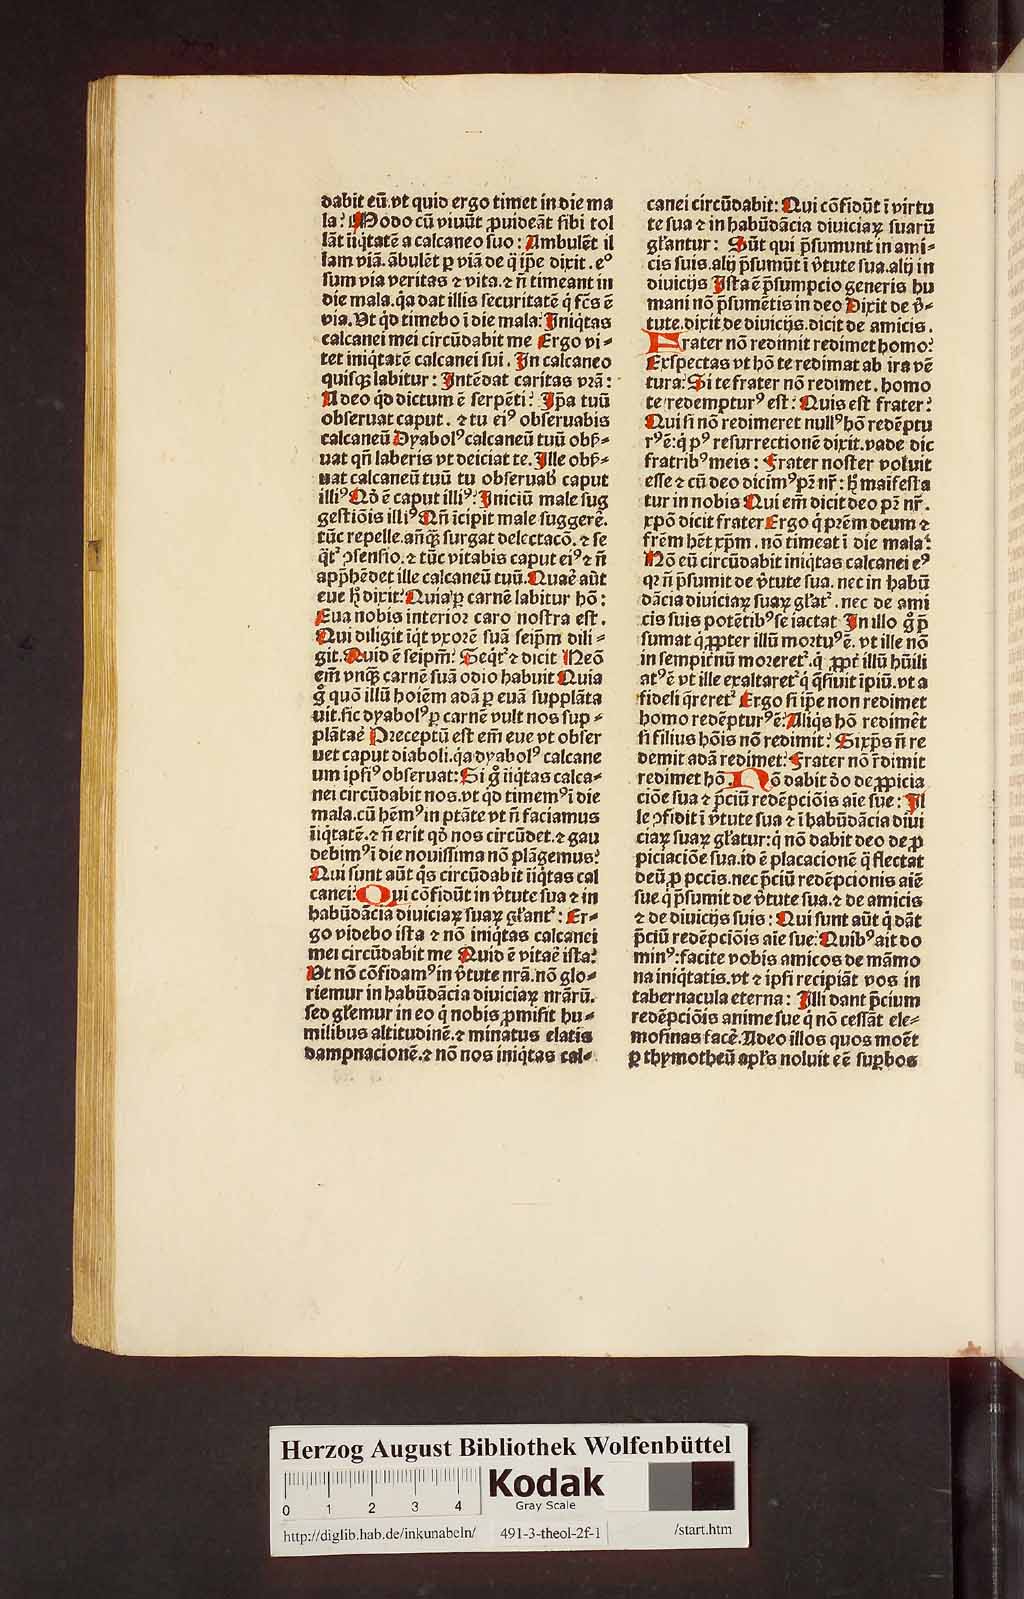 dabit eū. vt quid ergo timet in die ma
la? Modo cū viuūt ꝓuideāt sibi tol
lāt iiq̄tatē a calcaneo suo: Ambulēt il
lam viā. ābulēt ꝑ viā de q̄ ip̄e dixit. eᵒ
sum via veritas ⁊ vita. ⁊ n̄ timeant in
die mala. q̄a dat illis securitatē q̄ fc̄s ē
via. Vt q̄d timebo ī die mala: Iniq̄tas
calcanei mei circūdabit me Ergo vi-
tet iniq̄tatē calcanei sui. In calcaneo
quisqꝫ labitur: Intēdat caritas vr̄a:
Adeo q̄d dictum ē serpēti? Ip̄a tuū
obseruat caput. ⁊ tu eiꝰ obseruabis
calcaneū Dyabolꝰ calcaneū tuū obẜ-
uat qn̄ laberis vt deiciat te. Ille obẜ-
uat calcaneū tuū tu obseruab̄ caput
illiꝰ Qd̄ ē caput illiꝰ? Iniciū male sug
gestiōis illiꝰ Qn̄ īcipit male suggerē.
tūc repelle. an̄qꝫ surgat delectacō. ⁊ se
q̄t᷒ ꝯsensio. ⁊ tūc vitabis caput eiꝰ ⁊ n̄
app̄hēdet ille calcaneū tuū. Quaē aūt
eue h̄ dixit? Quia ꝑ carnē labitur hō:
Eua nobis interior caro nostra est.
Qui diligit īq̄t vxorē suā seip̄m dili-
git. Quid ē seip̄m? Seq̄t᷒ ⁊ dicit Neō
em̄ vnqꝫ carnē suā odio habuit Quia
g̊ quō illū hoiēm adā ꝑ euā supplāta
uit. sic dyabolꝰ ꝑ carnē vult nos sup-
plātaē Preceptū est em̄ eue vt obser
uet caput diaboli. q̄a dyabolꝰ calcane
um ipsiꝰ obseruat: Si g̊ iiq̄tas calca-
nei circūdabit nos. vt q̄d timemꝰ ī die
mala. cū hēmꝰ in ptāte vt n̄ faciamus
iiq̄tatē. ⁊ n̄ erit qd̄ nos circūdet. ⁊ gau
debimꝰ ī die nouissima nō plāgemus?
Qui sunt aūt q̄s circūdabit iiq̄tas cal
canei: Qui cōfidūt in v̄tute sua ⁊ in
habūdācia diuiciaꝝ suaꝝ gl̄ant᷒: Er-
go videbo ista ⁊ nō iniq̄tas calcanei
mei circūdabit me Quid ē vitaē ista?
Vt nō cōfidamꝰ in v̄tute nr̄a. nō glo-
riemur in habūdācia diuiciaꝝ nr̄arū.
sed gl̄emur in eo q̄ nobis ꝓmisit hu-
milibus altitudinē. ⁊ minatus elatis
dampnacionē. ⁊ nō nos iniq̄tas cal-
canei circūdabit: Qui cōfidūt ī virtu
te sua ⁊ in habūdācia diuiciaꝝ suarū
gl̄antur: Sūt qui p̄sumunt in ami-
cis suis. alij p̄sumūt ī v̄tute sua. alij in
diuicijs Ista ē p̄sumpcio generis hu
mani nō p̄sumētis in deo Dixit de v̄-
tute. dixit de diuicijs. dicit de amicis.
Frater nō redimit redimet homo?
Exspectas vt hō te redimat ab ira vē
tura: Si te frater nō redimet. homo
te redempturꝰ est: Quis est frater?
Qui si nō redimeret nullꝰ hō redēptu
rꝰ ē: q̄ pꝰ resurrectionē dixit. vade dic
fratribꝰ meis: Frater noster voluit
esse ⁊ cū deo dicimꝰ pr̄ nr̄: h̄ maīfesta
tur in nobis Qui em̄ dicit deo pr̄ nr̄.
xp̄o dicit frater Ergo q̄ pr̄em deum ⁊
fr̄em hēt xp̄m. nō timeat ī die mala?
Nō eū circūdabit iniq̄tas calcanei eꝰ
qꝛ n̄ p̄sumit de v̄tute sua. nec in habū
dācia diuiciaꝝ suaꝝ gl̄at᷒. nec de ami
cis suis potētibꝰ se iactat In illo g̊ p̄
sumat q̄ ꝓpter illū mortuꝰ ē. vt ille nō
in sempit̄nū moreret᷒. q̄ ꝓpt̄ illū hūili
atꝰ ē vt ille exaltaret᷒ q̄ q̄siuit īpiū. vt a
fideli q̄reret᷒ Ergo si ip̄e non redimet
homo redēpturꝰ ē: Aliq̄s hō redimēt
si filius hōis nō redimit? Si xp̄s n̄ re
demit adā redimet? Frater nō r̄dimit
redimet hō Nō dabit dō de ꝓpicia
ciōe sua ⁊ p̄ciū redēpciōis aīe sue: Il
le ꝯfidit ī v̄tute sua ⁊ ī habūdācia diui
ciaꝝ suaꝝ gl̄atur: q̄ nō dabit deo de ꝓ
piciaciōe sua. id ē placacionē q̄ flectat
deū ꝓ pcc̄is. nec p̄ciū redēpcionis aīē
sue q̄ p̄sumit de v̄tute sua. ⁊ de amicis
⁊ de diuicijs suis: Qui sunt aūt q̄ dāt
p̄ciū redēpciōis aīe sue: Quibꝰ ait do
minꝰ: facite vobis amicos de māmo
na iniq̄tatis. vt ⁊ ipsi recipiāt vos in
tabernacula eterna: Illi dant p̄cium
redēpciōis anime sue q̄ nō cessāt ele-
mosinas facē. Adeo illos quos moēt
ꝑ thymotheū apl̄s noluit eē suꝑbos
Herzog August Bibliothek Wolfenbüttel
Kodak
Gray Scale
0 1 2 3 4
http://diglib.hab.de/inkunabeln/ 491-3-theol-2f-1 /start.htm